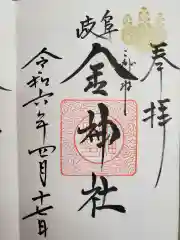 奉拝
岐阜
金神社
令和六年四月十七日